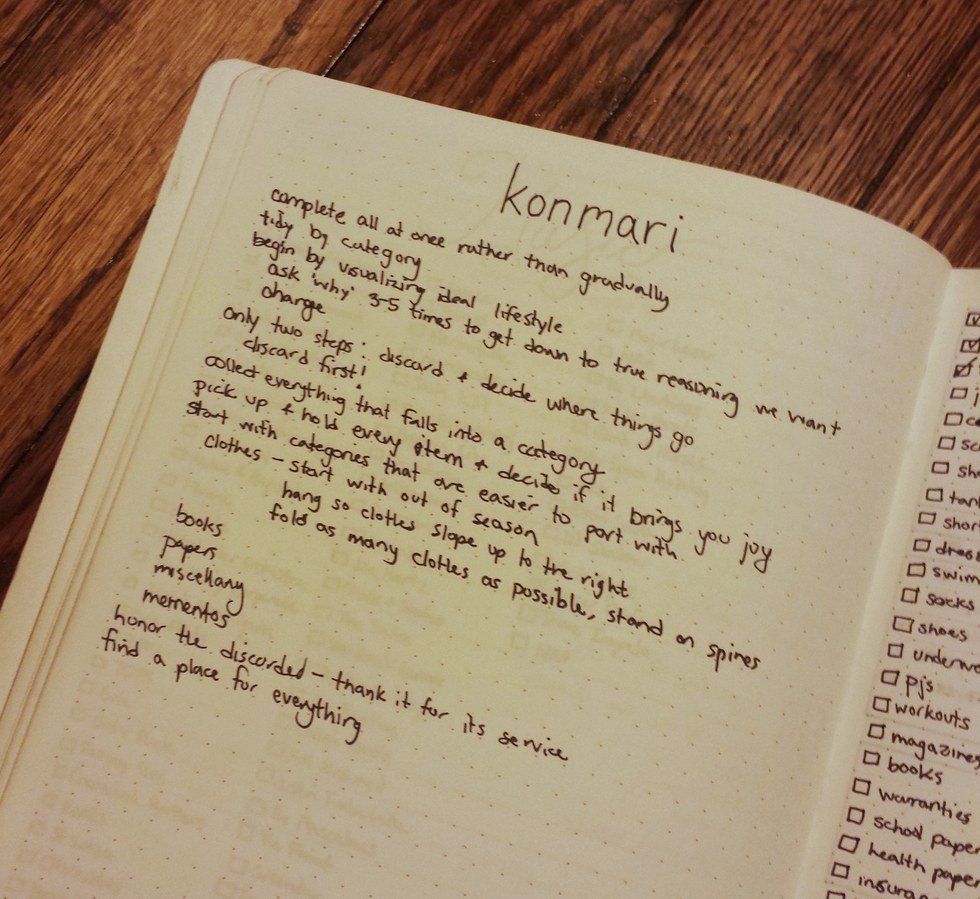 konmari
complete all at once rather than gradually
tidy by category
begin by visualizing ideal lifestyle
ask 'why' 3-5 times to get down to true reasoning we want
change
only two steps: discard + decide where things go
discard first!
collect everything that falls into a category
pick up + hold every item + decide if it brings you joy
start with categories that are easier to part with
clothes - start with out of season
hang so clothes slope up to the right
fold as many clothes as possible, stand on spines
books
papers
miscellany
mementos
honor the discarded - thank it for its service
find a place for everything
socks
shoes
pjs
workouts
magazines
books
warranties
school paper
health paper